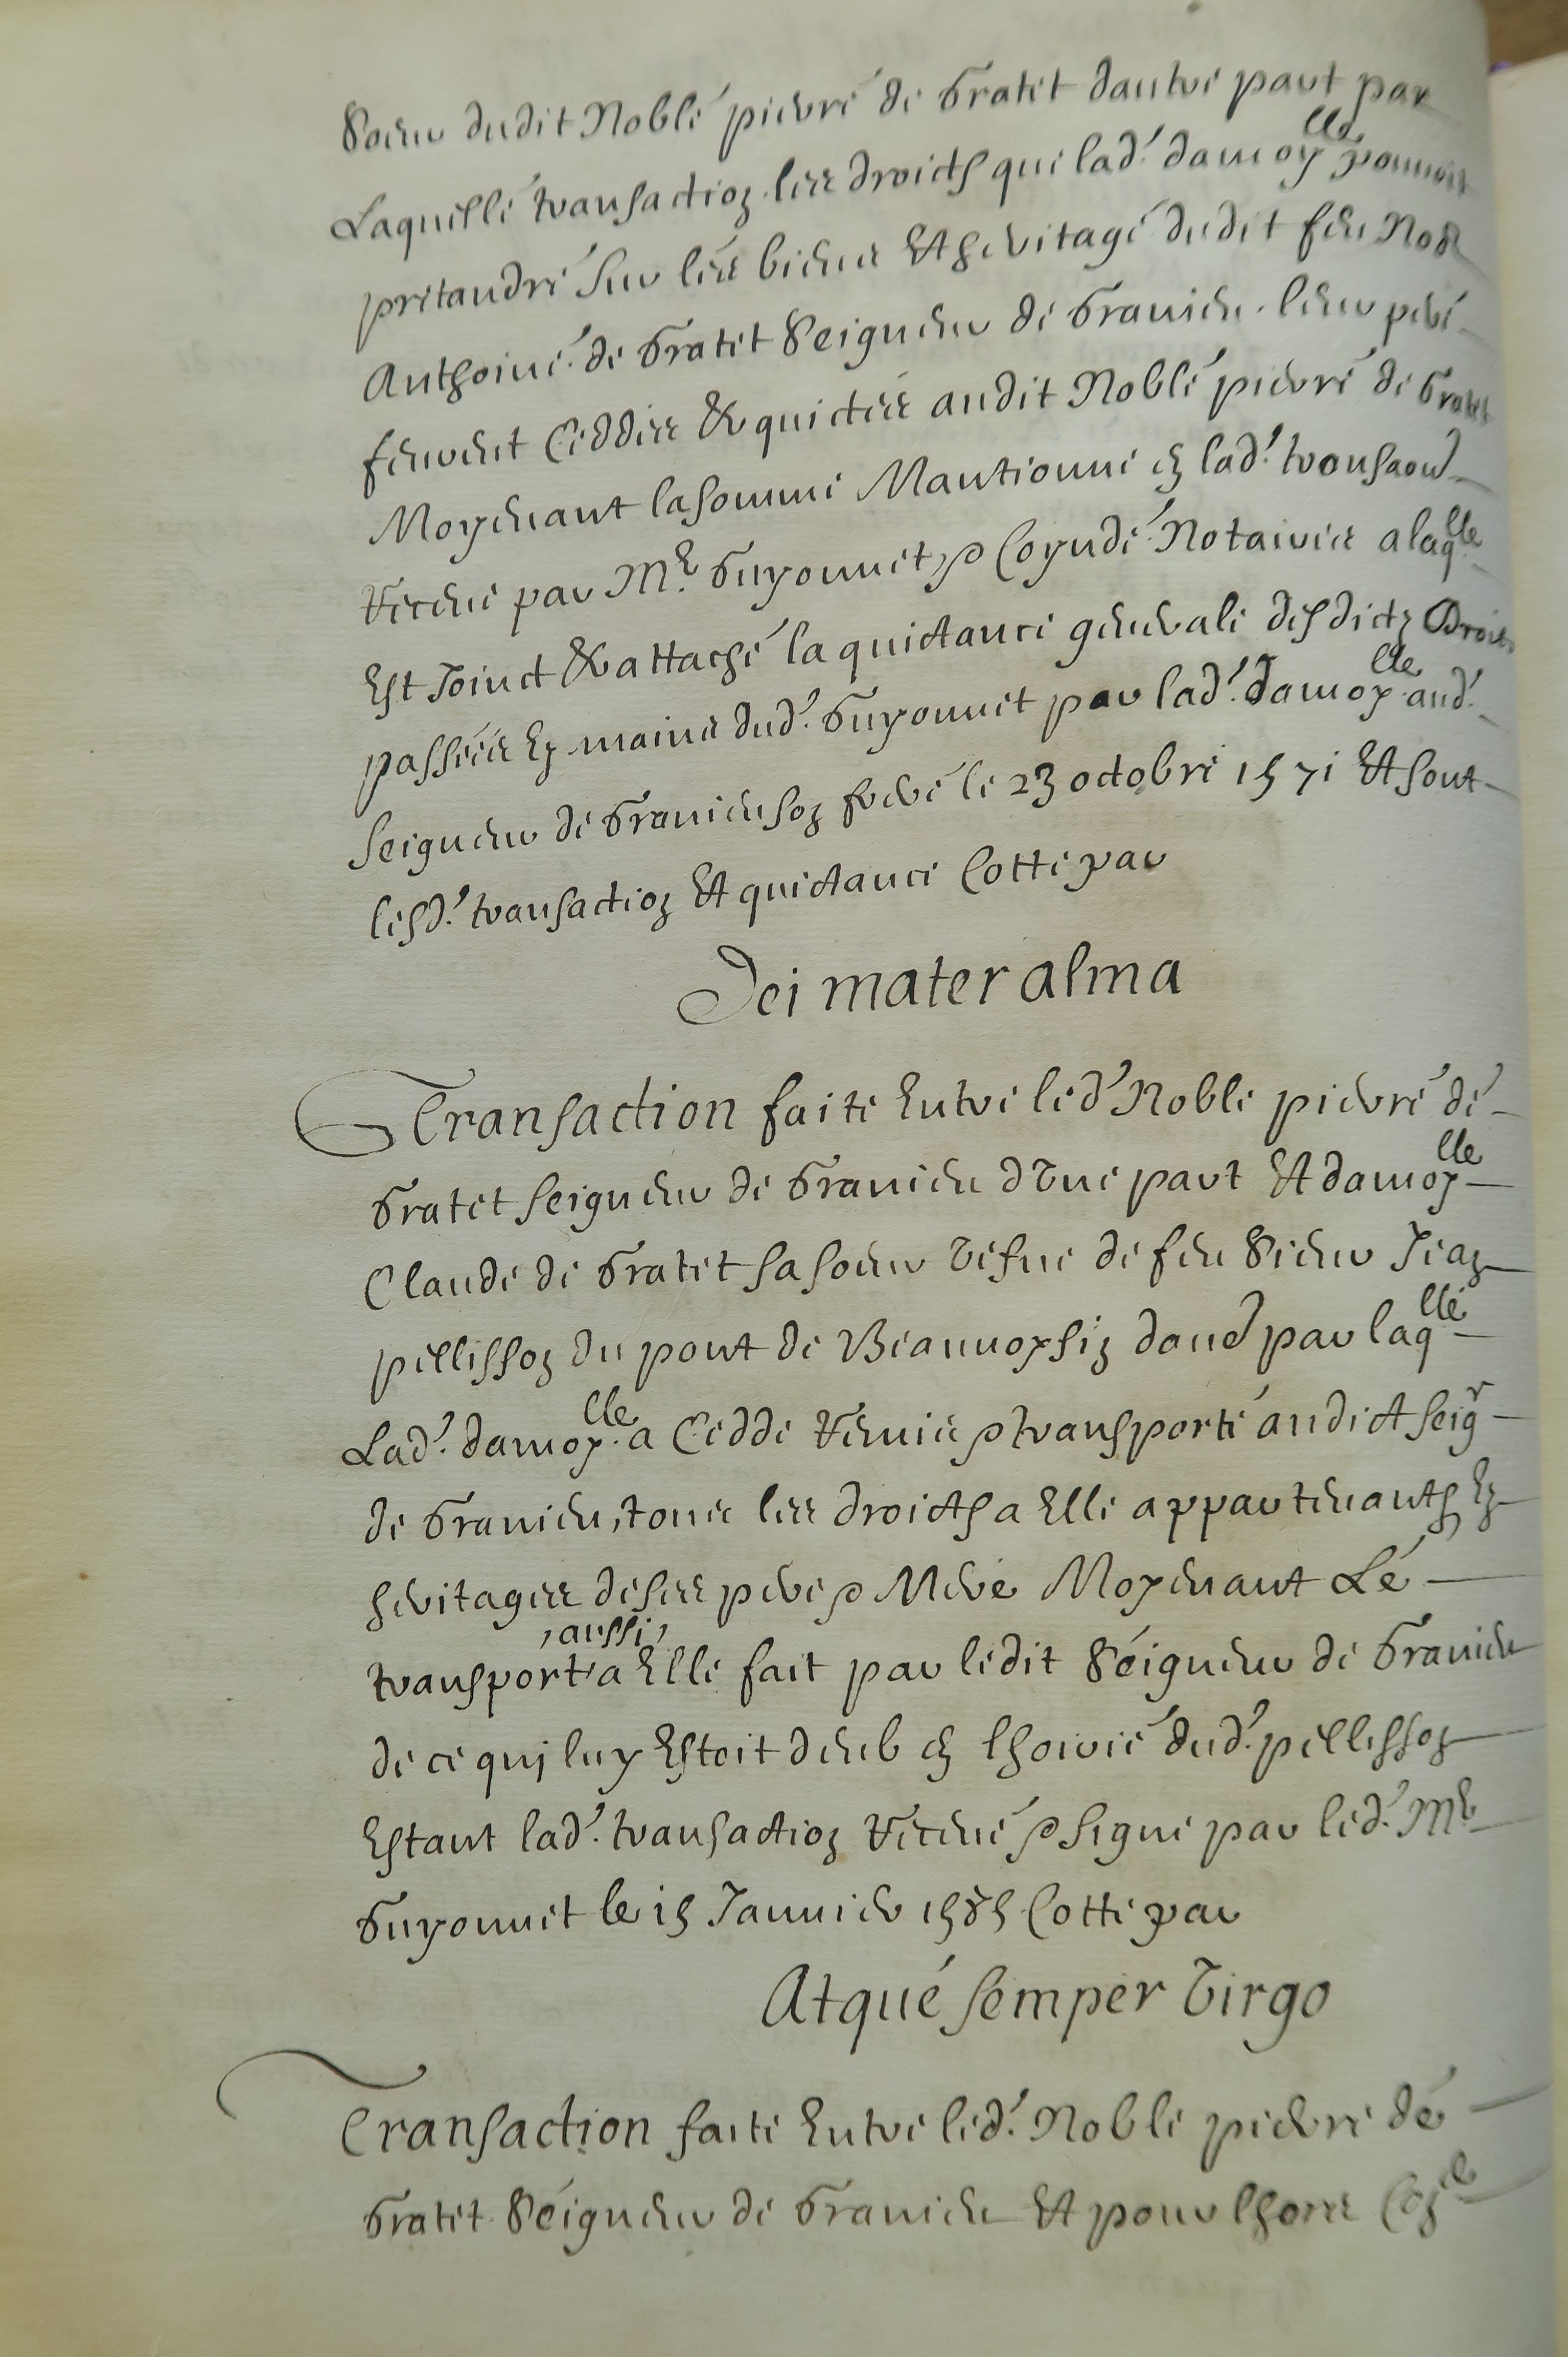 Soeur dudit Noble pierre de Gratet dautre part par
Laquelle transaction les droicts que lad. damoy.lle pouuoit
pretandre sur les biens Et heritage dudit feu Nob
Anthoine de Gratet Seigneur de Granieu leur pere
feurent Ceddes & quictes audit Noble pierre de Gratet
Moyenant la somme Mantionné en lad. transaon
receue par Mr. Guyonnet & Coynde Notaires a laq.lle
Est Joinct & attaché la quictance generale desdictz Droits
passées Ez mains dud. Guyonnet par lad. damoy.lle aud.
seigneur de Granieu son frere le 23 octobre 1571 Et sont
lesd. transaction Et quictance Cotte par
Dei mater alma
Transaction faite Entre led. Noble pierre de
Gratet seigneur de Granieu dVne part Et damoy.lle
Claude de Gratet sa soeur Vefue de feu Sieur Jean
pellisson du pont de Beauuoysin daud par laq.lle
Lad. damoy.lle a Cedde remis & transporté audict seigr
de Granieu, tous les droicts a Elle appartenants Ez
heritages de ses pere & Mere Moyenant Le
transport ,aussi, a Elle fait par ledit Seigneur de Granieu
de ce quj luy Estoit deub en lhoirie dud. pellisson
Estant lad. transaction receue & signe par led. Mr
Guyonnet le 15 Januier 1585 Cotte par
Atque semper Virgo
Transaction faite Entre led. Noble pierre de
Gratet Seigneur de Granieu Et pour lhors